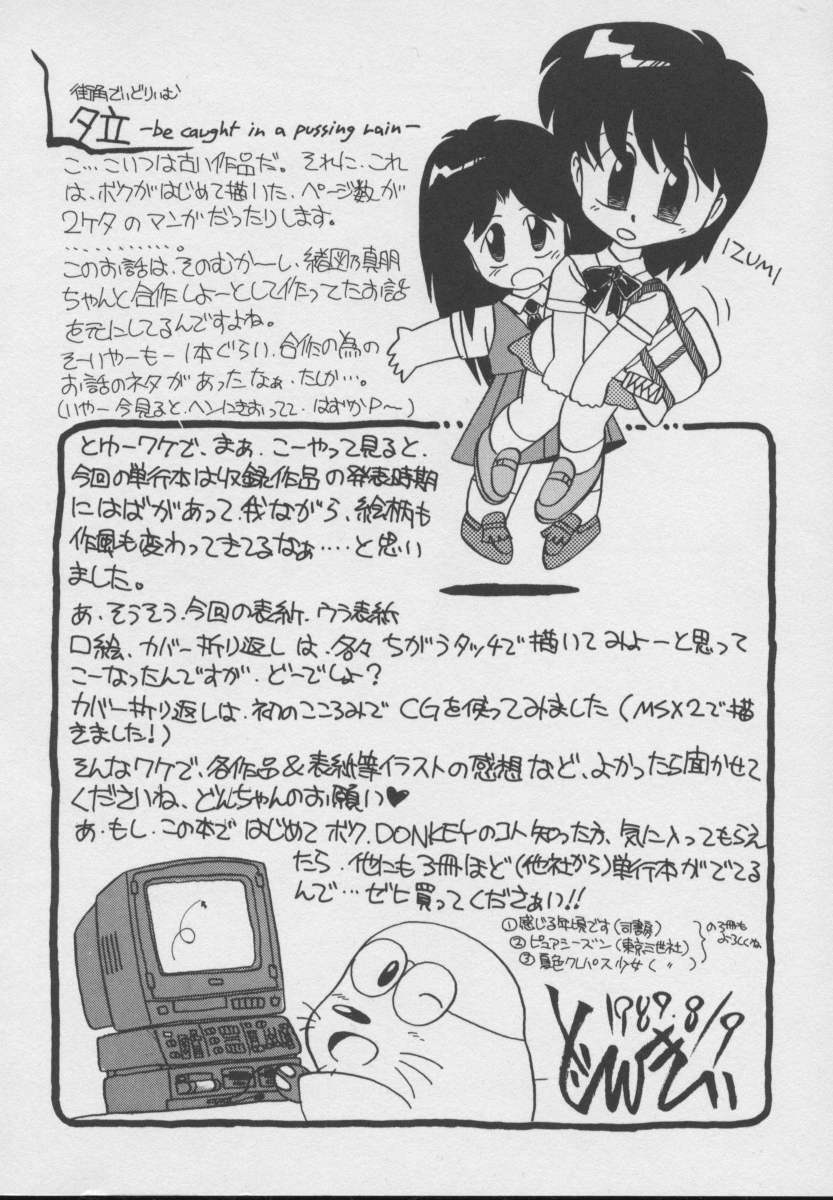 街角でいどりぃむ
夕立 -be caught in a pussing rain-
こ…こいつは古い作品だ。それに、これ
は、ボクがはじめて描いた、ページ数が
2ケタのマンガだったりします。
…………。
このお話は、そのむかーし、緒図乃真朋
ちゃんと合作しよーとして作ってたお話
を元にしてるんですよね。
そーいやーもー1本ぐらい、合作の為の
お話のネタがあったなぁ、たしか…。
(いやー今見ると、ヘンにきおってて、はずかP〜)
IZUMI
とゆーワケで、まぁ、こーやって見ると、
今回の単行本は収録作品の発表時期
にはばがあって、我ながら、絵柄も
作風も変わってきてるなぁ‥‥と思い
ました。
あ、そうそう、今回の表紙、ウラ表紙
口絵、カバー折り返しは、各々ちがうタッチで描いてみよーと思って
こーなったんですが、どーでしょ?
カバー折り返しは、初のこころみでCGを使ってみました(MSX2で描
きました!)
そんなワケで、各作品&表紙等イラストの感想など、よかったら聞かせて
くださいね、どんちゃんのお願い♥
あ、もし、この本ではじめてボク、DONKEYのコト知った方、気に入ってもらえ
たら、他にも3冊ほど(他社から)単行本がでてる
んで…ゼヒ買ってくださぁい!!
①感じる年頃です(司書房)
②ピュアシーズン(東京三世社)
③夏色クレパス少女(〃)
の3冊も
よろしくね
1989.8/9
どんきぃ